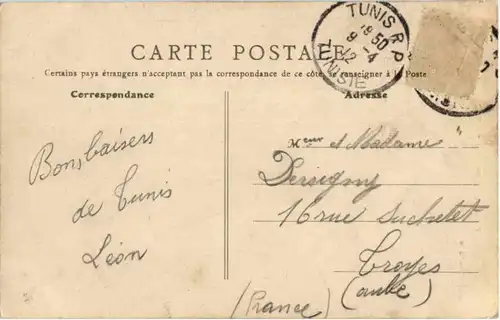 CARTE POSTALE
Certains pays étrangers n'acceptant pas la correspondance de ce côté, se renseigner à la Poste
Correspondance
Bons baisers
de Tunis
Léon
Adresse
Meur et Madame
Dersigny
16 rue Suchetet
Troyes
(aube)
(France)
TUNIS R.P.
1950
9-4
12
TUNISIE